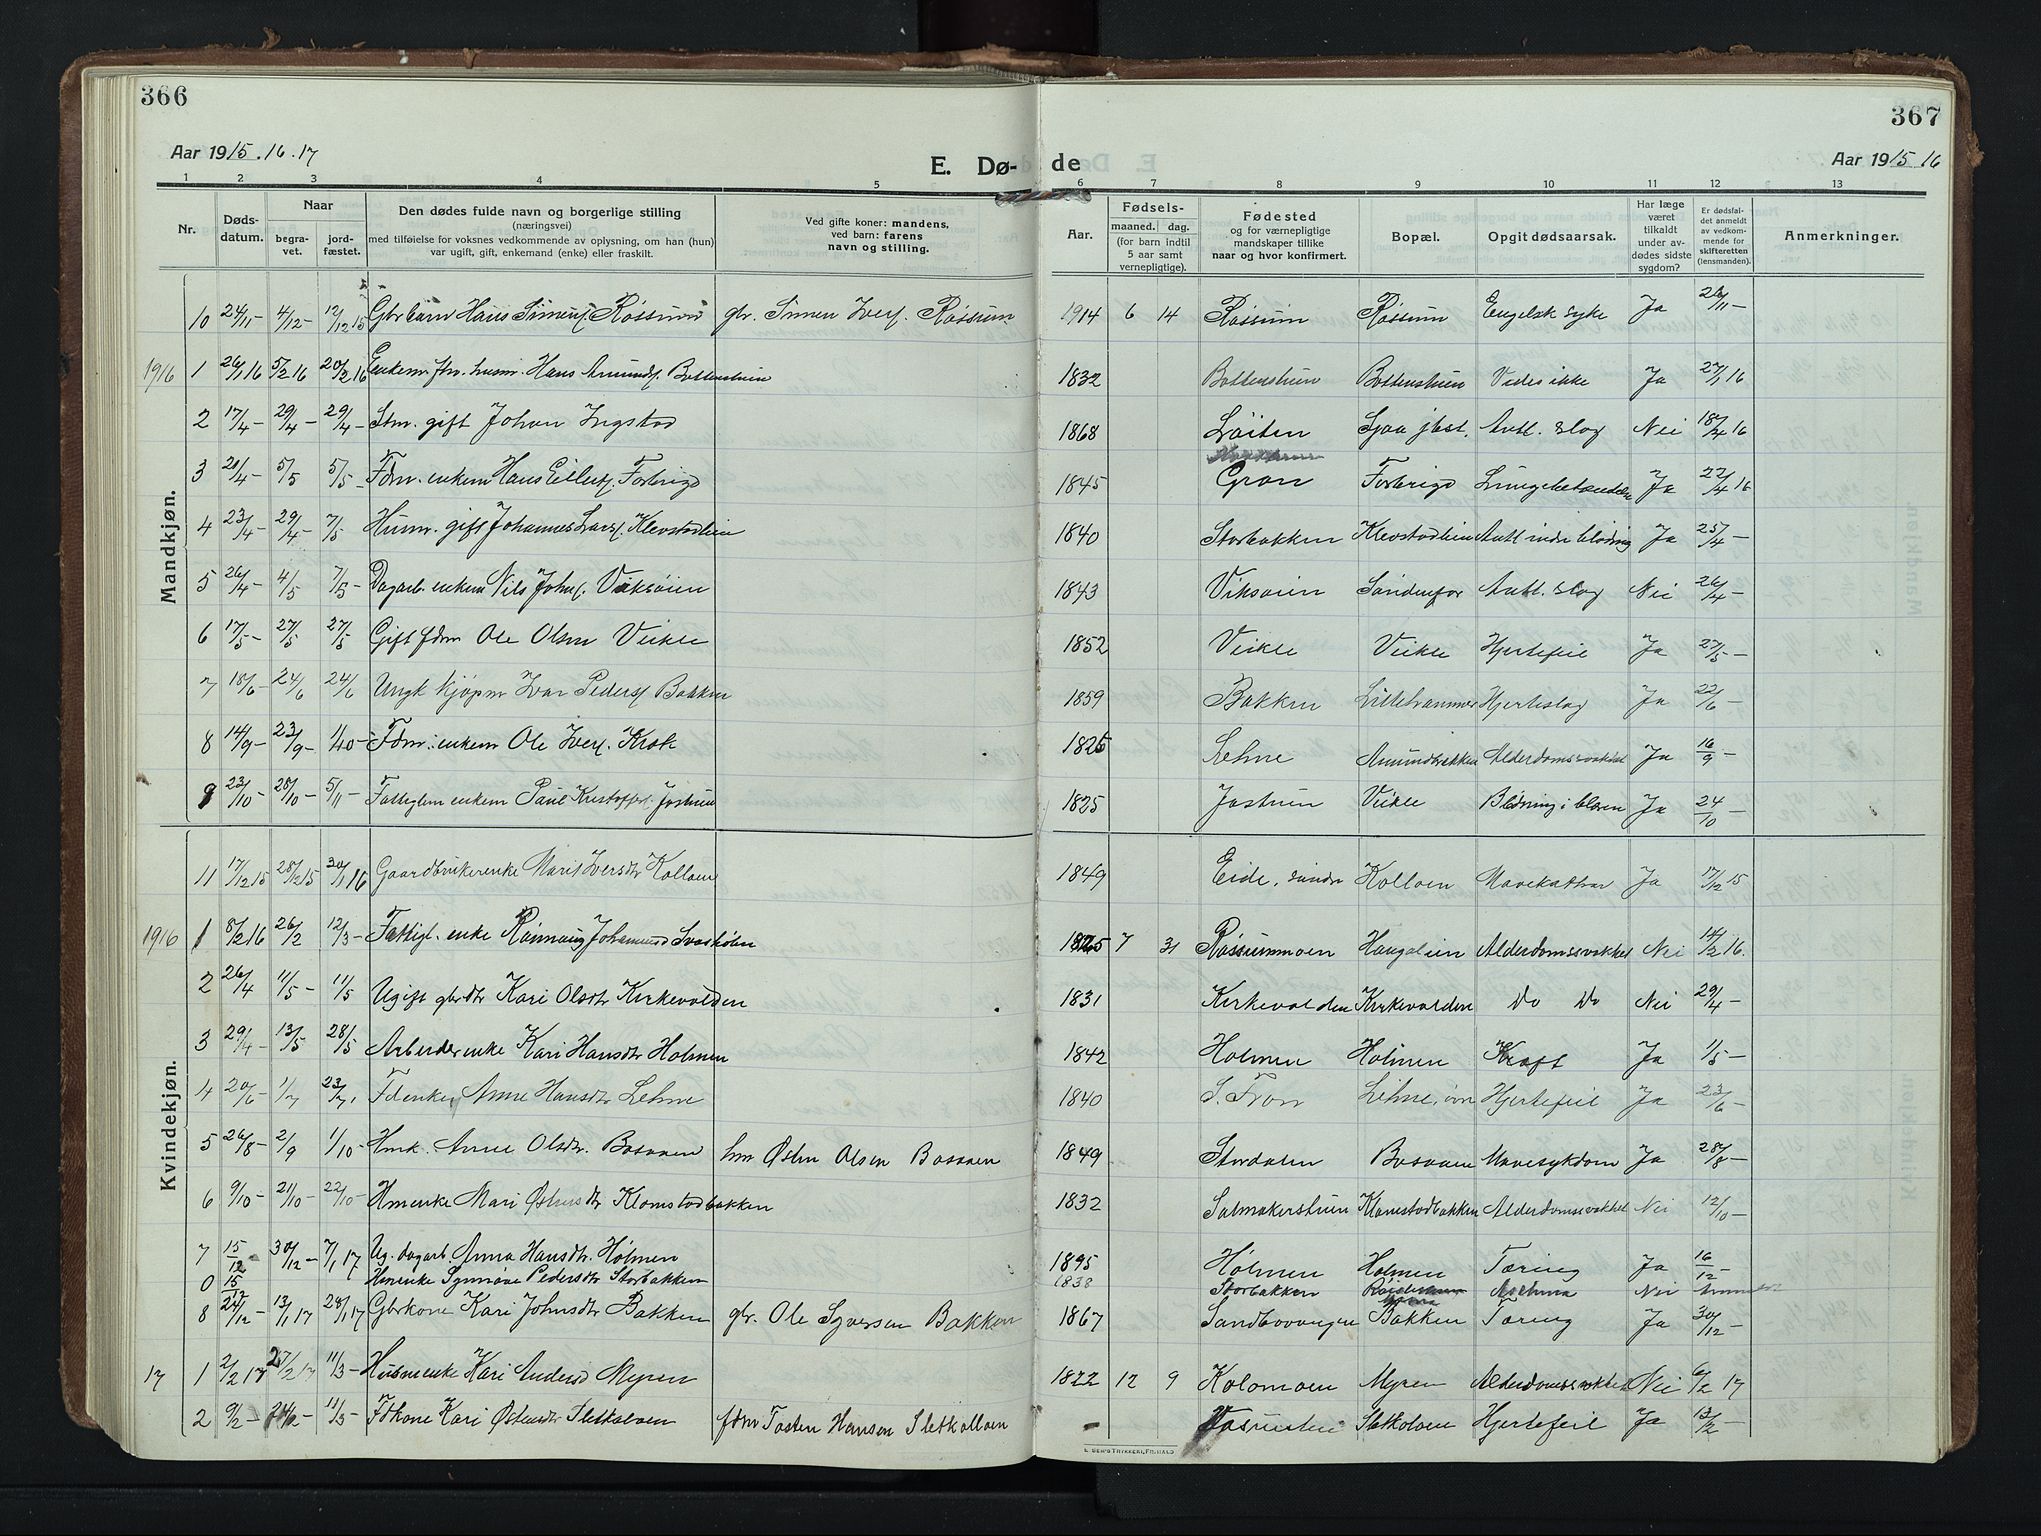 366
367
Aar 1915.16.17
E. Dø-
de
Aar 1915 16
1 2 3 4 5 6 7 8 9 10 11 12 13
Nr.
Døds-
datum.
Naar
begra-
vet.
jord-
fæstet.
Den dødes fulde navn og borgerlige stilling
(næringsvei)
med tilføielse for voksnes vedkommende av oplysning, om han (hun)
var ugift, gift, enkemand (enke) eller fraskilt.
Ved gifte koner: mandens,
ved barn: farens
navn og stilling.
Aar.
Fødsels-
maaned. dag.
(for barn indtil
5 aar samt
vernepligtige).
Fødested
og for værnepligtige
mandskaper tillike
naar og hvor konfirmert.
Bopæl.
Opgit dødsaarsak.
Har læge
været
tilkaldt
under av-
dødes sidste
sygdom?
Er dødsfal-
det anmeldt
av vedkom-
mende for
skifteretten
(lensmanden).
Anmerkninger.
Mandkjøn.
10 24/11- 4/12- 12/12 15 Gbr barn Hans Simens. Rossum gbr. Simen Ivers. Rossum 1914 6 14 Rossum Rossum Engelsk syke Ja 26/11-
1916 1 26/1 16 5/2 16 20/2 16 Enkem. fhv. husm. Hans Amunds. Bottenshuen 1832 Bottenshuen Bottenshuen Vides ikke Ja 27/1 16
2 17/4- 29/4- 29/4- Stm. gift Johan Ingstad 1868 Løiten Sjoa jbst. Antl. slag Nei 18/4 16
3 21/4- 5/5 5/5- Fdm. enkem Hans Eilerts. Forbrigd 1845 Gran Forbrigd Lungebetændelse Ja 22/4 16
4 23/4- 29/4- 7/5 Husm. gift Johannes Lars. Klevstadlien 1840 Storbakken Klevstadlien Antl indre blødning Ja 25/4-
5 26/4- 4/5 7/5- Dagarb. enkem Nils Johs. Viksøien 1843 Viksøien Søndenfor Antl. slag Nei 26/4-
6 17/5- 27/5 27/5 Gift fdm Ole Olsen Veikle 1852 Veikle Veikle Hjertefeil Ja 27/5-
7 18/6- 24/6 24/6 Ungk kjøpm Ivar Peders. Bakken 1859 Bakken Lillehammer Hjerteslag Ja 22/6-
8 14/9- 23/9- 1/10- Fdm. enkem Ole Ivers. Krok 1825 Lehne Amundbakken Alderdomssvakhet Ja 16/9-
9 23/10- 28/10- 5/11- Fattiglem enkem Paul Kristoffers. Jostuen 1825 Jostuen Veikle Blødning i blæren Ja 24/10-
Kvindekjøn.
11 17/12 15 28/12 15 30/1 16 Gaardbrukerenke Marit Iversdtr Kolloen 1849 Eide, søndre Kolloen Mavekatharr Ja 17/12 15
1916 1 8/2 16 26/2 12/3- Fattigl. enke Rønnaug Johannesd 1825 7 31 Rossummoen Haugalien Alderdomssvakhet Nei 14/2 16.
2 26/4 11/5- 11/5 Ugift gbrdtr Kari Olsdtr Kirkevolden 1831 Kirkevolden Kirkevolden Do Do Nei 29/4-
3 29/4- 13/5 28/5 Arbeiderenke Kari Hansdtr Holmen 1842 Holmen Holmen Kræft Ja 1/5-
4 20/6- 1/7 23/7 Fdenke Anne Hansdtr Lehne 1840 S. Fron Lehne, øvr Hjertefeil Ja 23/6-
5 26/8- 2/9 1/10- Hmk. Anne Olsdtr. Bosaaen hm Østen Olsen Bosaaen 1849 Stordalen Bosaaen Mavesykdom Ja 28/8-
6 9/10- 21/10- 22/10- Hmenke Mari Østensdtr Klomstadbakken 1832 Salmakerstuen Klomstadbakken Alderdomssvakhet Nei 12/10-
7 15/12 30/12- 7/1 17 Ug. dagarb Anna Hansdtr. Holmen 1895 Holmen Holmen Tæring Ja 16/12-
0 15/12 Hmenke Synnøve Pedersdtr Storbakken 1838 Storbakken Asthma Nei
8 24/12- 13/1 17 28/1 17 Gbrkone Kari Johnsdtr Bakken gbr. Ole Syversen Bakken 1867 Sandbovangen Bakken Tæring Ja 30/12-
17 1 2/2 17 27/2 17 11/3- Husmenke Kari Andersd Myren 1822 12 9 Kolomoen Myren Alderdomssvakhet Nei 6/2 17
2 9/2- 11/3- Fdkone Kari Østensdtr Sletkoloen fdm Tosten Hansen Sletkolloen Sletkoloen Hjertefeil Ja 13/2-
E. SEM'S TRYKKERI, FR.HALD